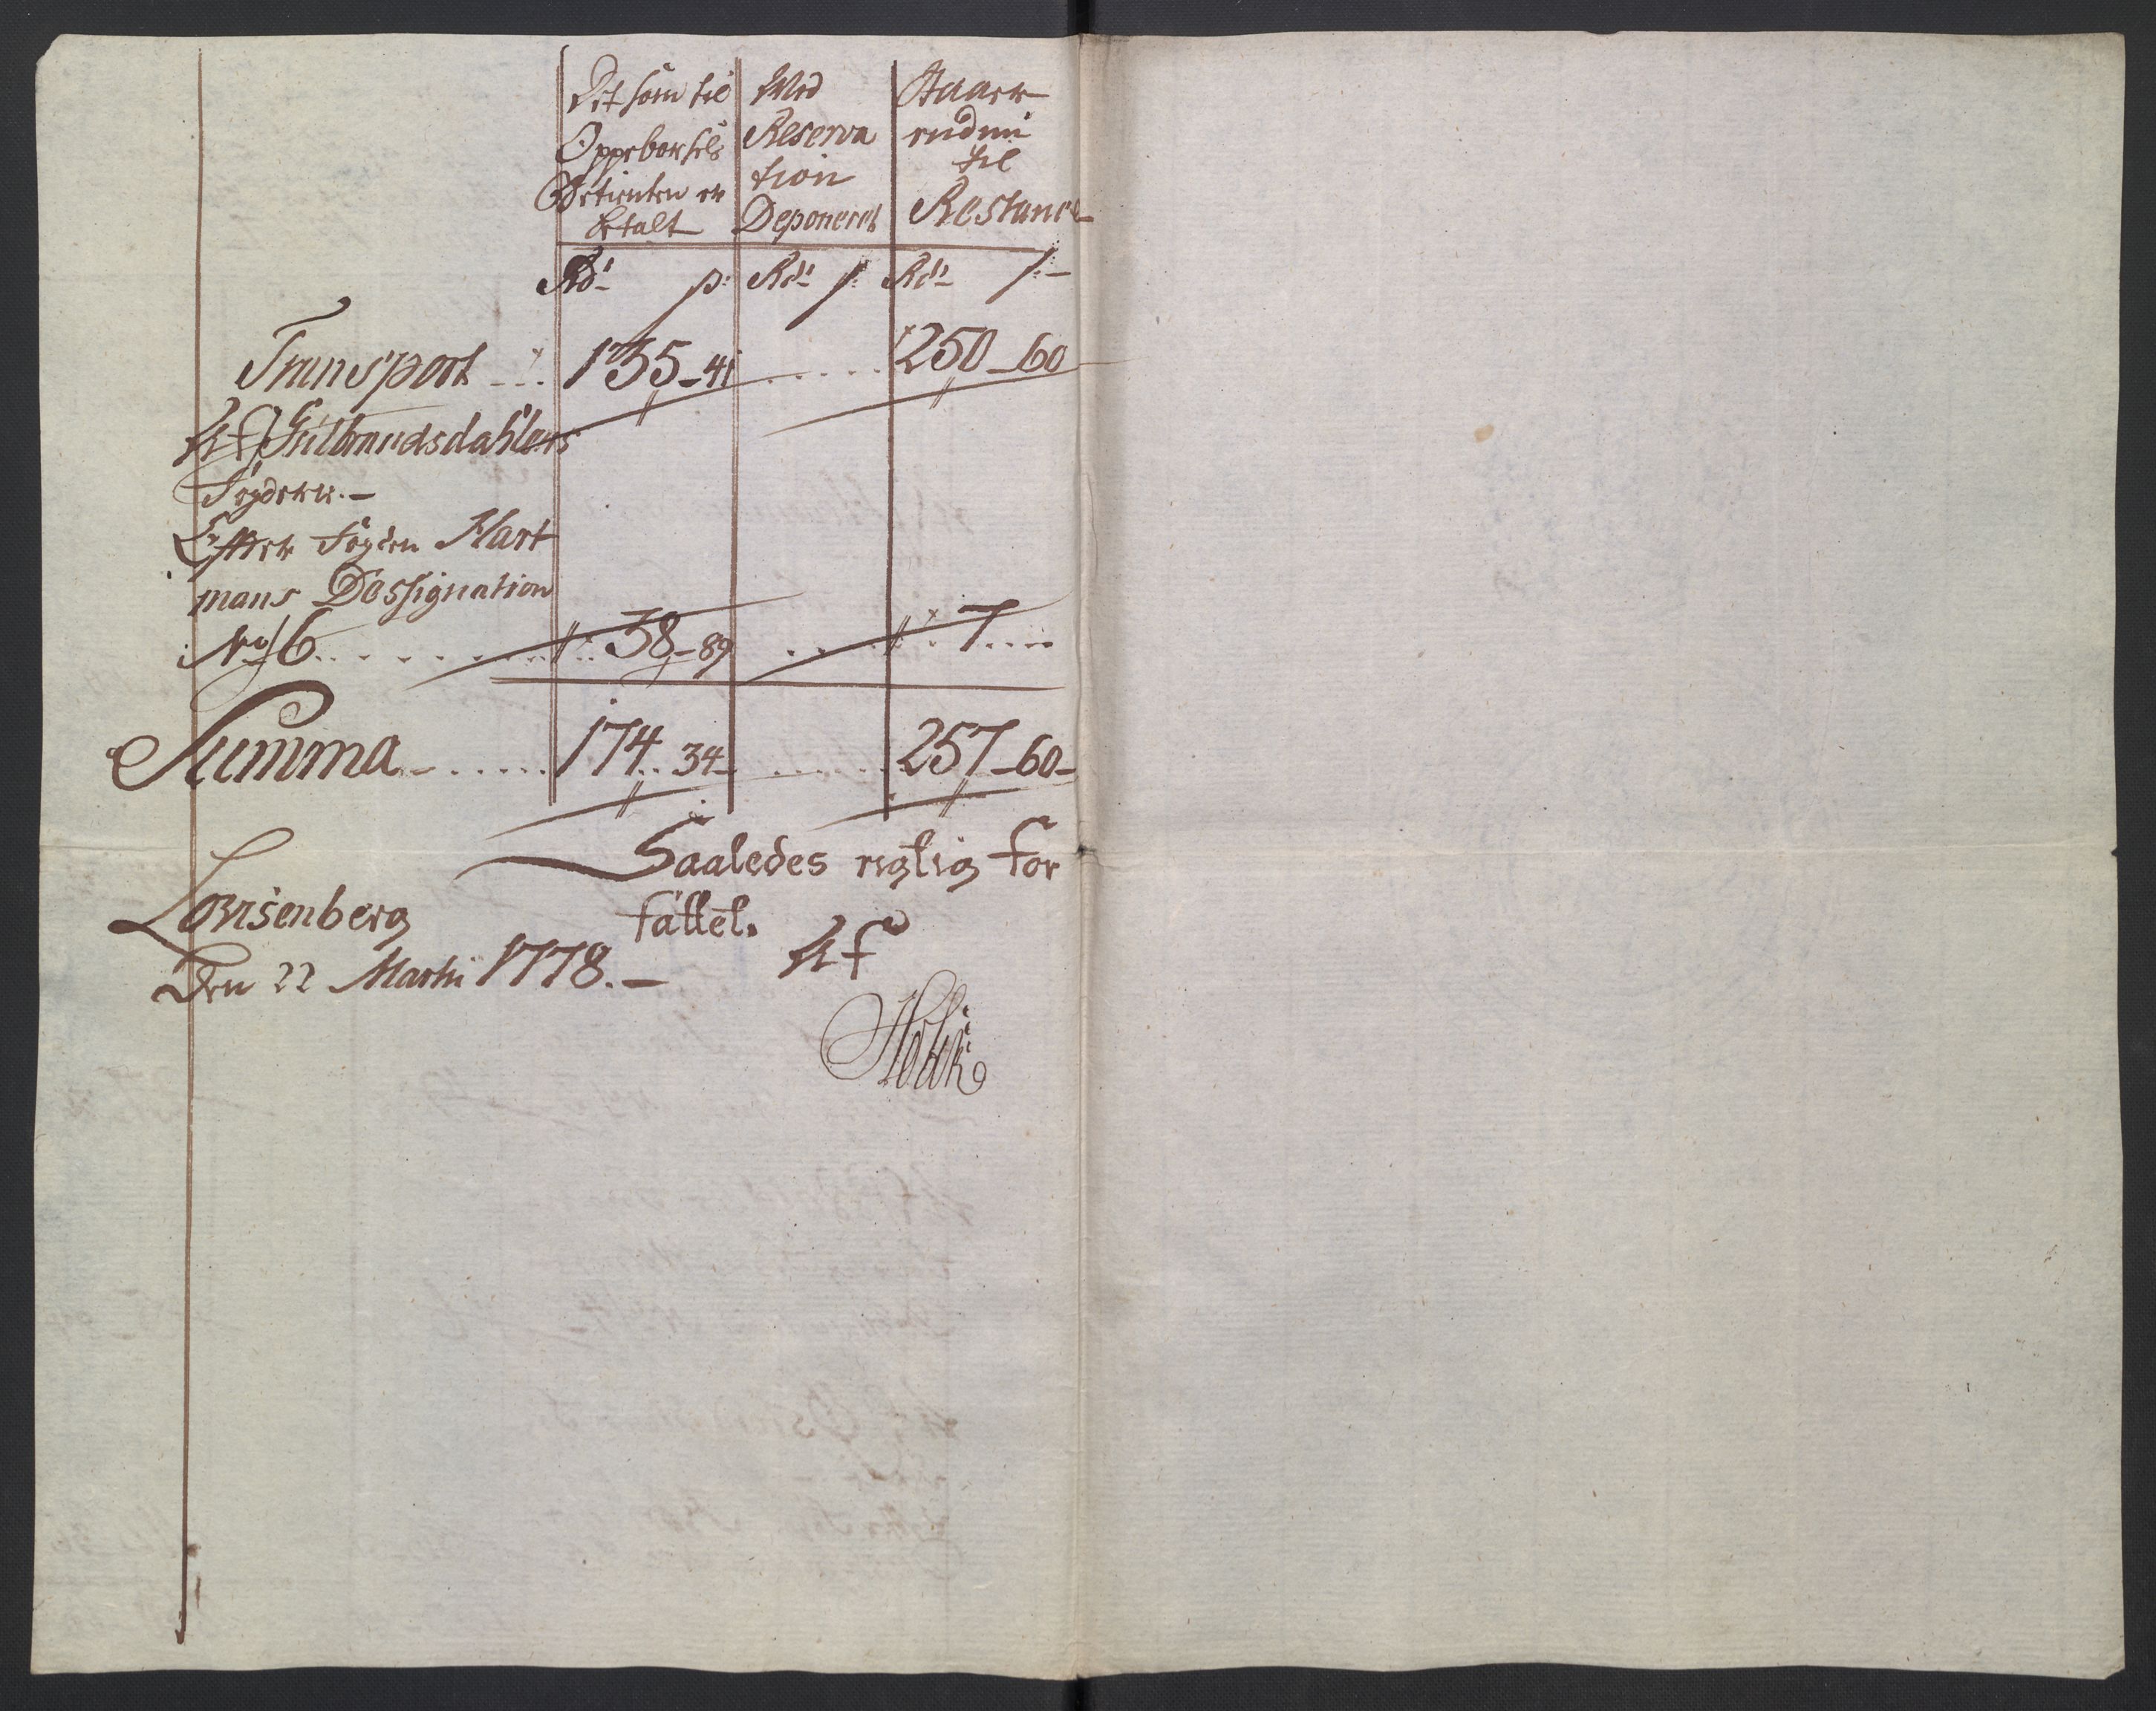 Det som til
Oppebørsels
Betienten er
betalt
Med
Reserva
tion
Deponeret
Staaer
endnu
til
Restance
Rdr s: Rdr s: Rdr s:
Transport ... 135-41 ..... 250-60
Af Gulbrandsdahlens
Fogderie.-
Efter Fogden Hart
mans Dessignation
No 6 ......... 38-89 .... 7....
Summa ...... 174..34 ...... 257-60-
Saaledes rigtig for
fattet.
Lovisenberg
Den 22 Martii 1778.-
Af